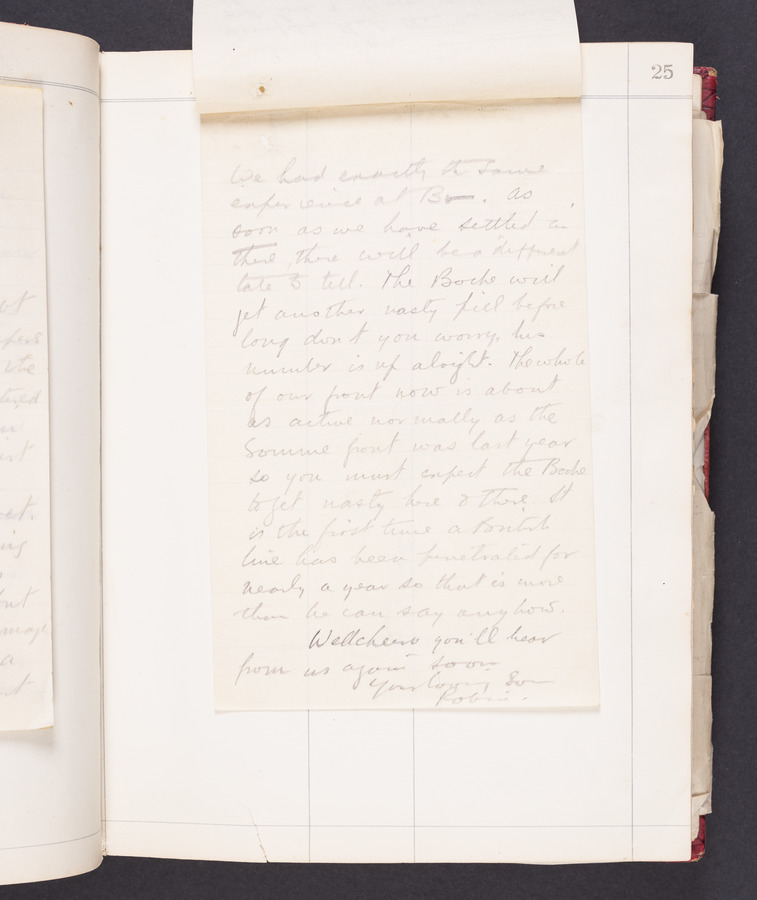 25
We had exactly the same
experience at B—. As
soon as we have settled in
there, there will be a different
tale to tell. The Boche will
get another nasty pill before
long don't you worry, his
number is up alright. The whole
of our front now is about
as active normally as the
Somme front was last year
so you must expect the Boche
to get nasty here & there. It
is the first time a British
line has been penetrated for
nearly a year so that is more
than he can say anyhow.
Wellcheero you'll hear
from us again soon
Your loving Son
Robin.